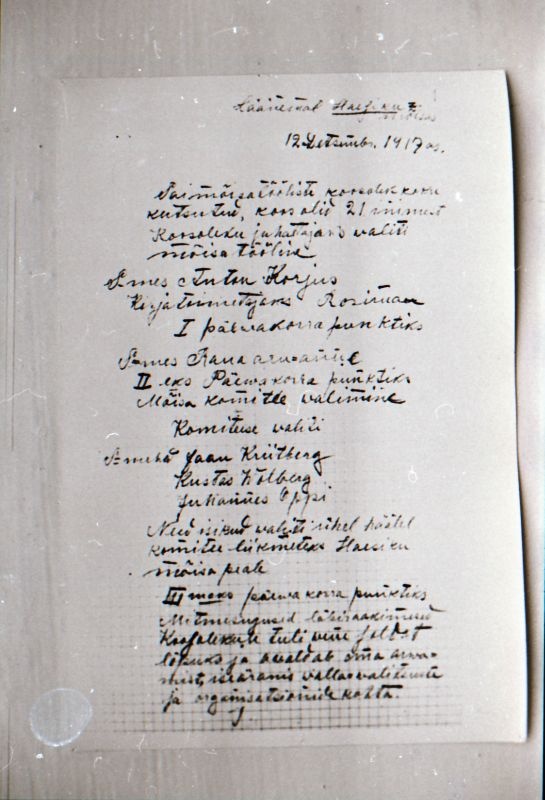 Läänemal Haesiku
mõisas
12 Detsembr. 1917 as.
Sai mõisatööliste koosolek koku
kutsutud, koos olid 21 inimest
Koosoleku juhatajaks valiti
mõisa tööline
Smes Anton Korjus
Kirjatoimetajaks Rosiman
I päewakorra punktiks
Smes Rana aruanne
II eks Päewakorra punktiks
Mõisa komitee walimine
Komiteese waliti
Smehd Jaan Kriitberg
Kustas Wolberg
Juhannes Oppi
Need isikud waliti ühel häälel
komitee liikmeteks Haesiku
mõisa peale
III maks päewakorra punktiks
Mitmesugused läbirääkimised
Koosolekule tuli wene soldat
lõpuks ja awaldab oma arwa-
mist, iseäranis wallawalitsuste
ja organisatsionide kohta.